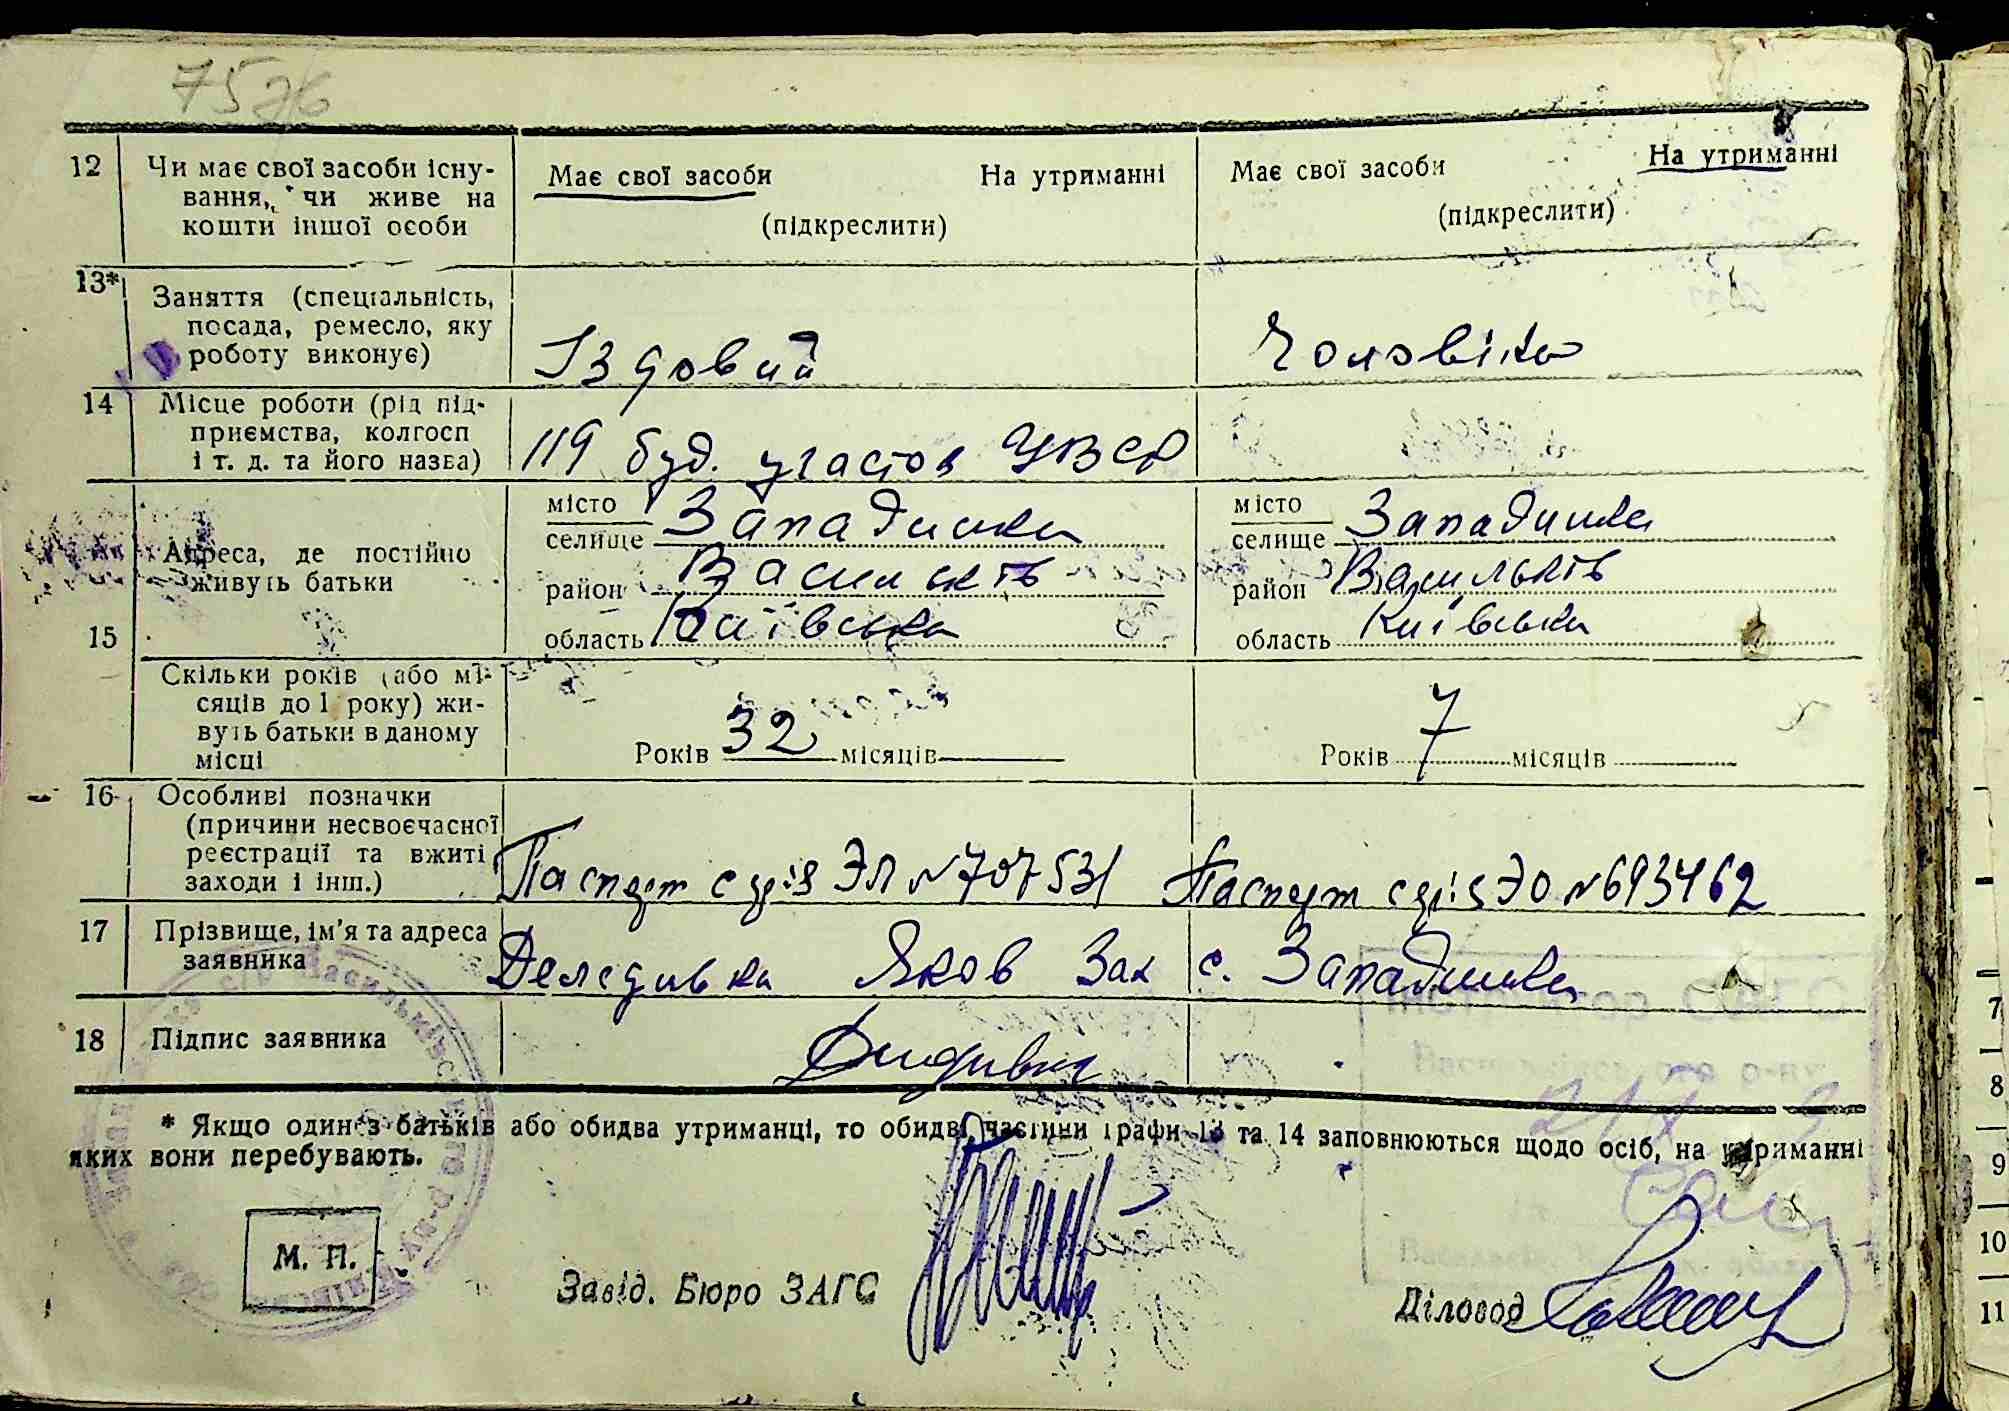 75 зв
12 Чи має свої засоби існу- Має свої засоби На утриманні Має свої засоби На утриманні
вання, чи живе на
кошти іншої особи (підкреслити) (підкреслити)
13* Заняття (спеціальність,
посада, ремесло, яку
роботу виконує) Їздовий Чоловіка
14 Місце роботи (рід під-
приємства, колгосп
і т. д. та його назва) 119 буд. участок УВСР
місто місто
селище Западинка селище Западинка
Адреса, де постійно
живуть батьки район Васильків район Васильків
15 область Київська область Київська
Скільки років (або мі-
сяців до 1 року) жи-
вуть батьки в даному Років 32 місяців Років 7 місяців
місці
16 Особливі позначки
(причини несвоєчасної
реєстрації та вжиті
заходи і інш.) Паспорт серія ЭЛ №707531 Паспорт серія ЭО №693462
17 Прізвище, ім'я та адреса
заявника Яков Зах с. Западинка
18 Підпис заявника
* Якщо один з батьків або обидва утриманці, то обидві частини графи 13 та 14 заповнюються щодо осіб, на утриманні
яких вони перебувають.
М. П.
Завід. Бюро ЗАГС Діловод